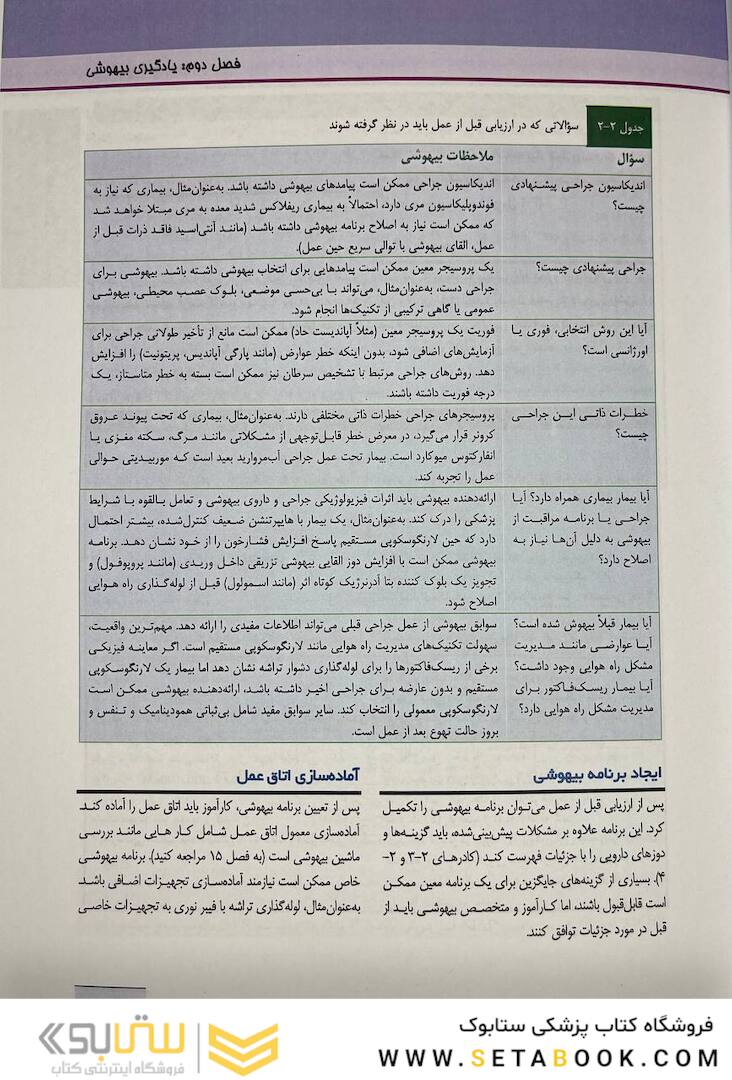 فصل دوم: یادگیری بیهوشی
جدول ۲-۲
سؤالاتی که در ارزیابی قبل از عمل باید در نظر گرفته شوند
سؤال
ملاحظات بیهوشی
اندیکاسیون جراحی پیشنهادی
چیست؟
اندیکاسیون جراحی ممکن است پیامدهای بیهوشی داشته باشد. به‌عنوان‌مثال، بیماری که نیاز به
فوندوپلیکاسیون مری دارد، احتمالاً به بیماری ریفلاکس شدید معده به مری مبتلا خواهد شد
که ممکن است نیاز به اصلاح برنامه بیهوشی داشته باشد (مانند آنتی‌اسید فاقد ذرات قبل از
عمل، القای بیهوشی با توالی سریع حین عمل).
جراحی پیشنهادی چیست؟
یک پروسیجر معین ممکن است پیامدهایی برای انتخاب بیهوشی داشته باشد. بیهوشی برای
جراحی دست، به‌عنوان‌مثال، می‌تواند با بی‌حسی موضعی، بلوک عصب محیطی، بیهوشی
عمومی یا گاهی ترکیبی از تکنیک‌ها انجام شود.
آیا این روش انتخابی، فوری یا
اورژانسی است؟
فوریت یک پروسیجر معین (مثلاً آپاندیست حاد) ممکن است مانع از تأخیر طولانی جراحی برای
آزمایش‌های اضافی شود، بدون اینکه خطر عوارض (مانند پارگی آپاندیس، پریتونیت) را افزایش
دهد. روش‌های جراحی مرتبط با تشخیص سرطان نیز ممکن است بسته به خطر متاستاز، یک
درجه فوریت داشته باشند.
خطرات ذاتی این جراحی
چیست؟
پروسیجرهای جراحی خطرات ذاتی مختلفی دارند. به‌عنوان‌مثال، بیماری که تحت پیوند عروق
کرونر قرار می‌گیرد، در معرض خطر قابل‌توجهی از مشکلاتی مانند مرگ، سکته مغزی یا
انفارکتوس میوکارد است. بیمار تحت عمل جراحی آب‌مروارید بعید است که موربیدیتی حوالی
عمل را تجربه کند.
آیا بیمار بیماری همراه دارد؟ آیا
جراحی یا برنامه مراقبت از
بیهوشی به دلیل آن‌ها نیاز به
اصلاح دارد؟
ارائه‌دهنده بیهوشی باید اثرات فیزیولوژیکی جراحی و داروی بیهوشی و تعامل بالقوه با شرایط
پزشکی را درک کند. به‌عنوان‌مثال، یک بیمار با هایپرتنشن ضعیف کنترل‌شده، بیشتر احتمال
دارد که حین لارنگوسکوپی مستقیم پاسخ افزایش فشارخون را از خود نشان دهد. برنامه
بیهوشی ممکن است با افزایش دوز القایی بیهوشی تزریقی داخل وریدی (مانند پروپوفول) و
تجویز یک بلوک کننده بتا آدرنرژیک کوتاه اثر (مانند اسمولول) قبل از لوله‌گذاری راه هوایی
اصلاح شود.
آیا بیمار قبلاً بیهوش شده است؟
آیا عوارضی مانند مدیریت
مشکل راه هوایی وجود داشت؟
آیا بیمار ریسک‌فاکتور برای
مدیریت مشکل راه هوایی دارد؟
سوابق بیهوشی از عمل جراحی قبلی می‌تواند اطلاعات مفیدی را ارائه دهد. مهم‌ترین واقعیت،
سهولت تکنیک‌های مدیریت راه هوایی مانند لارنگوسکوپی مستقیم است. اگر معاینه فیزیکی
برخی از ریسک‌فاکتورها را برای لوله‌گذاری دشوار تراشه نشان دهد اما بیمار یک لارنگوسکوپی
مستقیم و بدون عارضه برای جراحی اخیر داشته باشد، ارائه‌دهنده بیهوشی ممکن است
لارنگوسکوپی معمولی را انتخاب کند. سایر سوابق مفید شامل بی‌ثباتی همودینامیک و تنفس و
بروز حالت تهوع بعد از عمل است.
ایجاد برنامه بیهوشی
پس از ارزیابی قبل از عمل می‌توان برنامه بیهوشی را تکمیل
کرد. این برنامه علاوه بر مشکلات پیش‌بینی‌شده، باید گزینه‌ها و
دوزهای دارویی را با جزئیات فهرست کند (کادرهای ۲-۳ و ۲-
۴). بسیاری از گزینه‌های جایگزین برای یک برنامه معین ممکن
است قابل‌قبول باشند، اما کارآموز و متخصص بیهوشی باید از
قبل در مورد جزئیات توافق کنند.
آماده‌سازی اتاق عمل
پس از تعیین برنامه بیهوشی، کارآموز باید اتاق عمل را آماده کند.
آماده‌سازی معمول اتاق عمل شامل کار هایی مانند بررسی
ماشین بیهوشی است (به فصل ۱۵ مراجعه کنید). برنامه بیهوشی
خاص ممکن است نیازمند آماده‌سازی تجهیزات اضافی باشد.
به‌عنوان‌مثال، لوله‌گذاری تراشه با فیبر نوری به تجهیزات خاصی
فروشگاه کتاب پزشکی ستابوک
WWW.SETABOOK.COM
ستابوک
فروشگاه اینترنتی کتاب